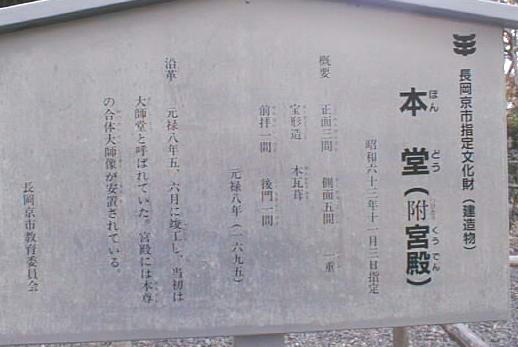 長岡京市指定文化財（建造物）
本堂（附宮殿）
ほんどう くうでん
昭和六十三年十一月三日指定
概要 正面三間 側面五間 一重
宝形造 本瓦葺
前拝一間 後門一間
元禄八年（一六九五）
沿革 元禄八年五、六月に竣工し、当初は
大師堂と呼ばれていた。宮殿には本尊
の合体大師像が安置されている。
長岡京市教育委員会